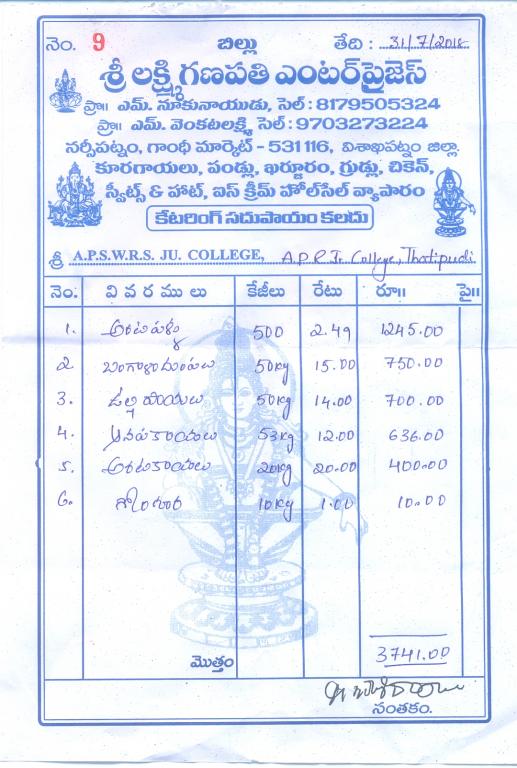 నెం. 9 బిల్లు తేది : 31/7/2018
శ్రీ లక్ష్మి గణపతి ఎంటర్‌ప్రైజెస్
ప్రొ॥ ఎమ్. నూకునాయుడు, సెల్ : 8179505324
ప్రొ॥ ఎమ్. వెంకటలక్ష్మి, సెల్ : 9703273224
నర్సీపట్నం, గాంధీ మార్కెట్ - 531116, విశాఖపట్నం జిల్లా.
కూరగాయలు, పండ్లు, ఖర్జూరం, గ్రుడ్లు, చికెన్,
స్వీట్స్ & హాట్, ఐస్ క్రీమ్ హోల్‌సేల్ వ్యాపారం
కేటరింగ్ సదుపాయం కలదు
శ్రీ A.P.S.W.R.S. JU. COLLEGE, A.P.R Jr. College, Thatipudi
నెం. వివరములు కేజీలు రేటు రూ॥ పై॥
1. అరటిపళ్ళు 500 2.49 1245.00
2. బంగాళాదుంపలు 50kg 15.00 750.00
3. ఉల్లిపాయలు 50kg 14.00 700.00
4. ఆనపకాయలు 53kg 12.00 636.00
5. అరటికాయలు 20kg 20.00 400.00
6. గోంగూర 10kg 1.00 10.00
మొత్తం 3741.00
సంతకం.